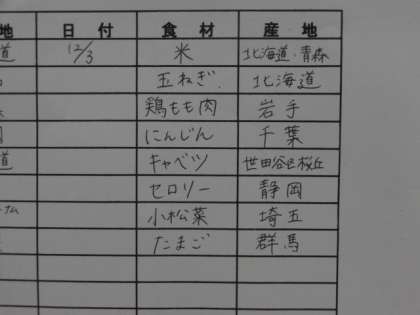 地 日 付 食 材 産 地
道 12/3 米 北海道・青森
玉ねぎ 北海道
鶏もも肉 岩手
にんじん 千葉
道 キャベツ 世田谷区桜丘
セロリー 静岡
小松菜 埼玉
たまご 群馬